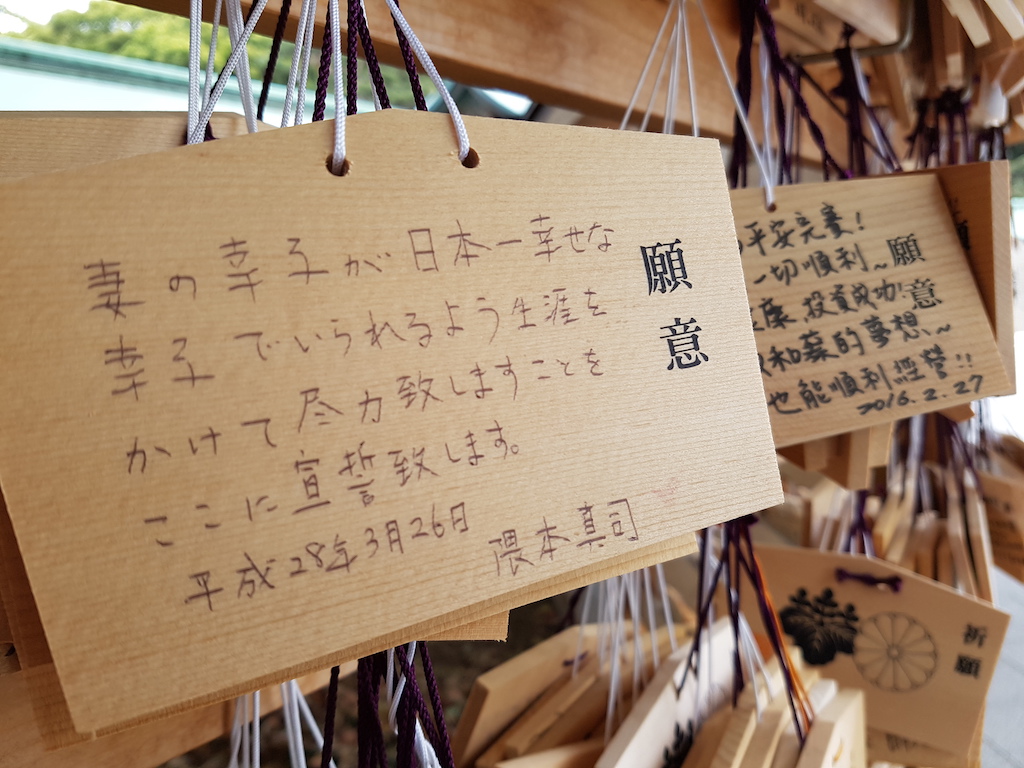 願意
妻の幸子が日本一幸せな
幸子でいられるよう生涯を
かけて尽力致しますことを
ここに宣誓致します。
平成28年3月26日
隈本真司
願意
平安完賽!
一切順利~
康,投資成功!
和蔡的夢想~
也能順利經營!!
2016.2.27
祈願